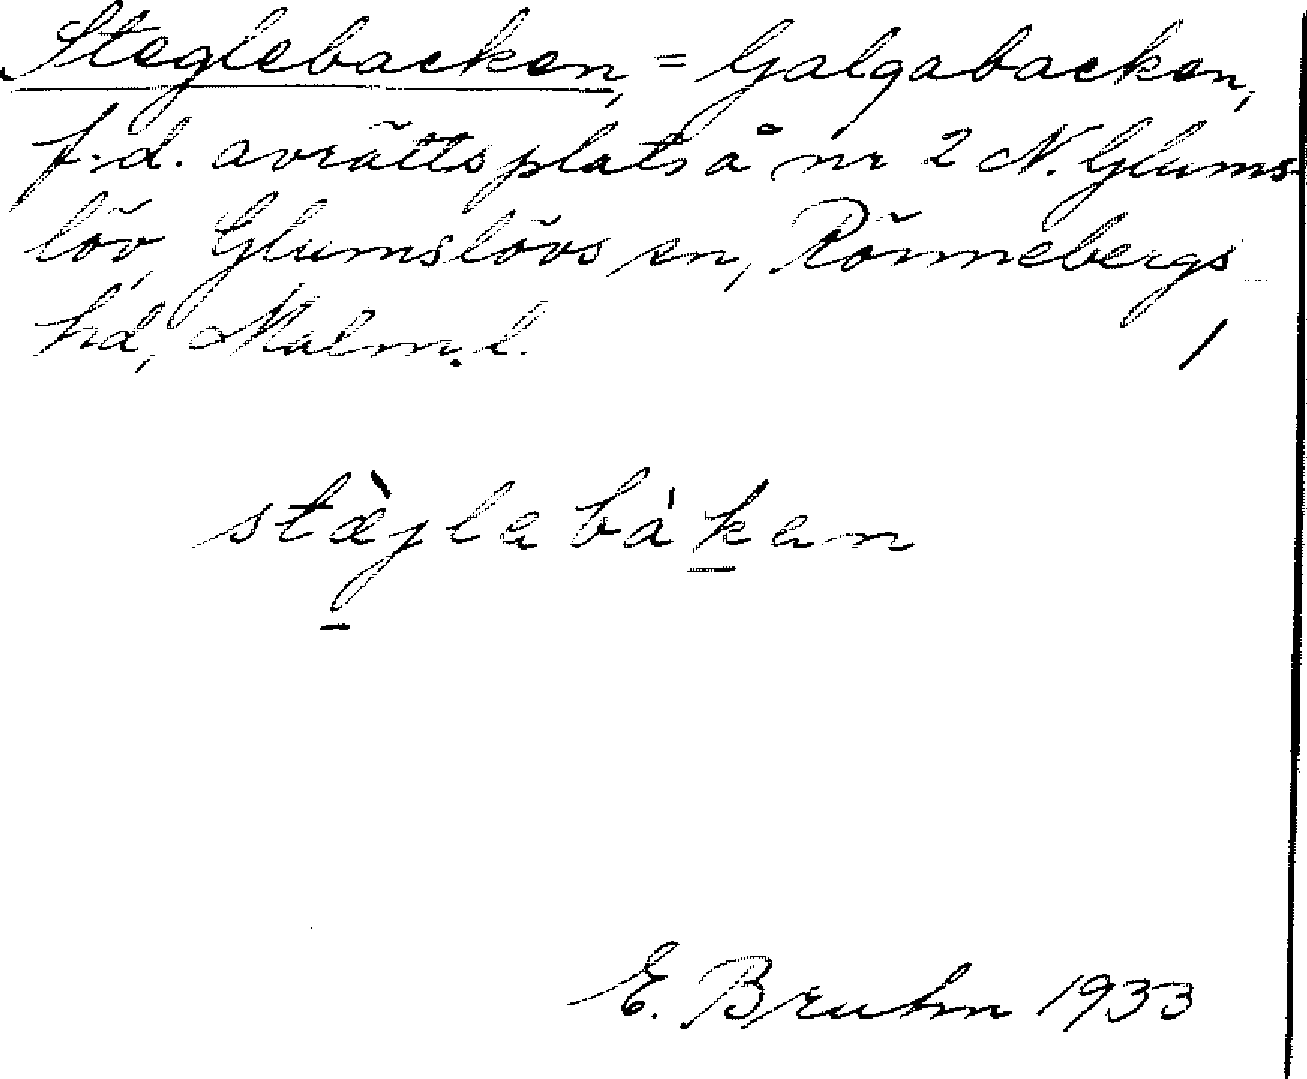 Steglebacken, = Galgabacken,
f.d. avrättsplats å nr 2 N. Glums-
löv, Glumslövs sn, Rönnebergs
hd, Malm. l.
stæ̀jlebákan
E. Bruhn 1933